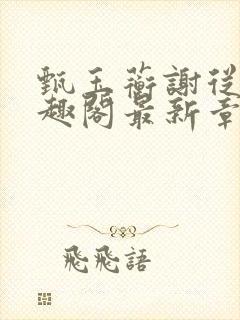 甄玉蘅謝從
趣閣最新章
飛飛語